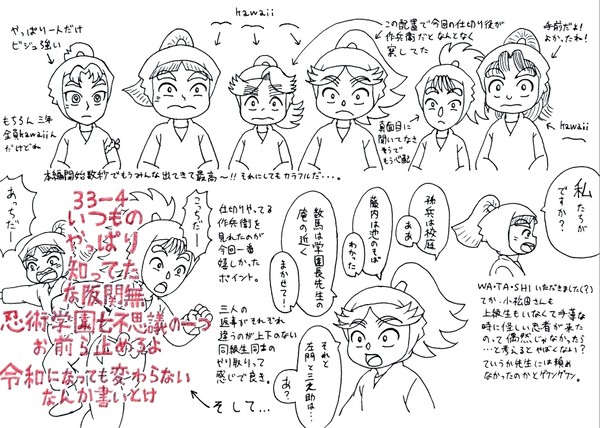 kawaii
やっぱり一人だけ
ビジュ強い
この配置で今回の仕切り役が
作兵衛だとなんとなく
察してた
手前だよ!
よかったね!
もちろん三年
全員kawaiiん
だけどね
真面目に
聞いてなさ
そうで
もう心配
kawaii
本編開始数秒でもうみんな出てきて最高〜!!それにしてもカラフルだ・・・。
私たちが
ですか?
あっちだー
こっちだー
33-4
いつもの
やっぱり
知ってた
な阪関無
忍術学園七不思議の一つ
お前ら止めろよ
令和になっても変わらない
なんか書いとけ
仕切りやってる
作兵衛を
見れたのが
今回一番
嬉しかった
ポイント。
三人の
返事がそれぞれ
違うのが上下のない
同級生同士の
やり取りって
感じで良き。
そして...
孫兵は校庭
ああ
藤内は池のそば
わかった
数馬は学園長先生の
庵の近く
まかせて!
それと
左門と三之助は...
あ?
WA・TA・SHIいただきました(?)
てか、小松田さんも
上級生もいなくて手薄な
時に怪しい忍者が来た
のって偶然じゃなかったら
...と考えるとやばくない?
ていうか先生には頼め
なかったのかとゲフンゲフン。